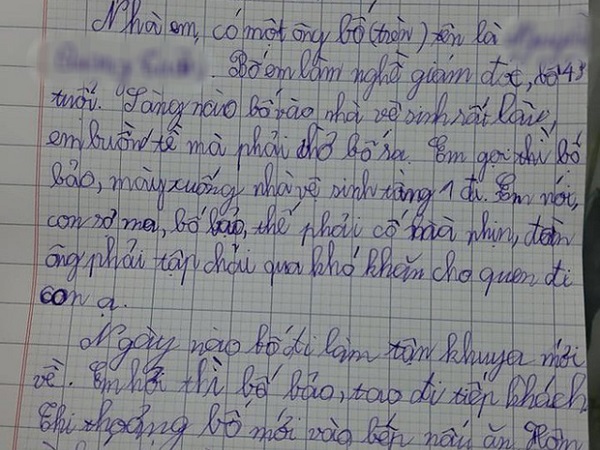 Nhà em, có một ông bố (trần) tên là
. Bố em làm nghề giám đốc, bố 43
tuổi. Sáng nào bố vào nhà vệ sinh rất lâu,
em buồn tè mà phải chờ bố ra. Em gọi thì bố
bảo, mày xuống nhà vệ sinh tầng 1 đi. Em nói,
con sợ ma, bố bảo, thế phải cố mà nhịn, đàn
ông phải tập chải qua khó khăn cho quen đi
con ạ.
Ngày nào bố đi làm tận khuya mới
về. Em hỏi thì bố bảo, tao đi tiếp khách
Thi thoảng bố mới vào bếp nấu ăn Hôm